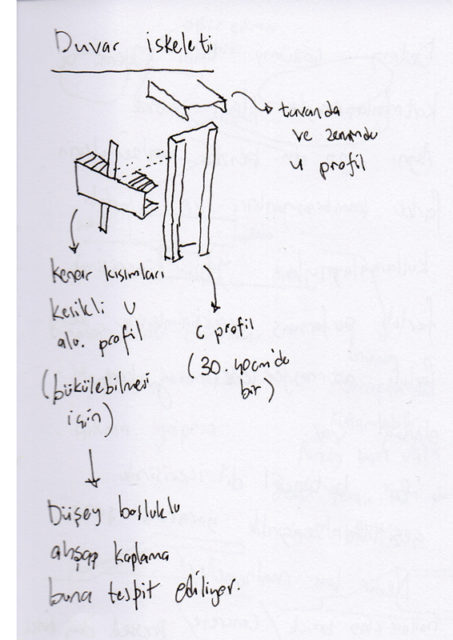 Duvar iskeleti
tavanda
ve zeminde
u profil
kenar kısımları
kesikli U
alü. profil
(bükülebilmesi
için)
C profil
(30.40cm'de
bir)
Düşey boşluklu
ahşap kaplama
buna tespit ediliyor.